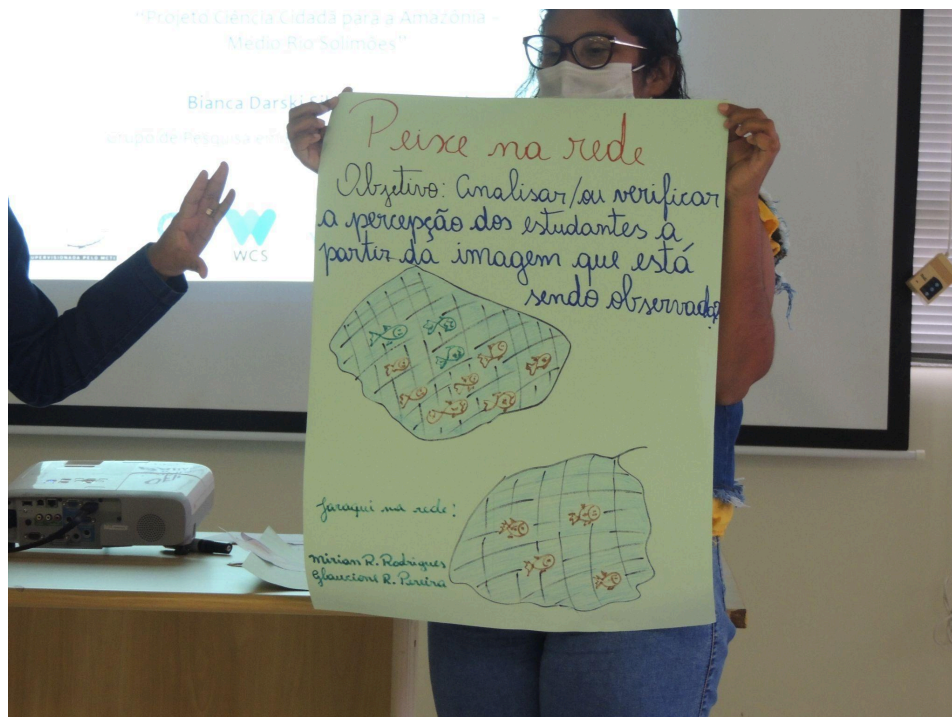 "Projeto Ciência Cidadã para a Amazônia -
Médio Rio Solimões"
Bianca Darski
Grupo de Pesquisa
WCS
SUPERVISIONADA PELO MCTI
Peixe na rede
Objetivo: Analisar/ou verificar
a percepção dos estudantes a
partir da imagem que está
sendo observada?
Jaraqui na rede:
Mirian R. Rodrigues
Glaucione R. Pereira